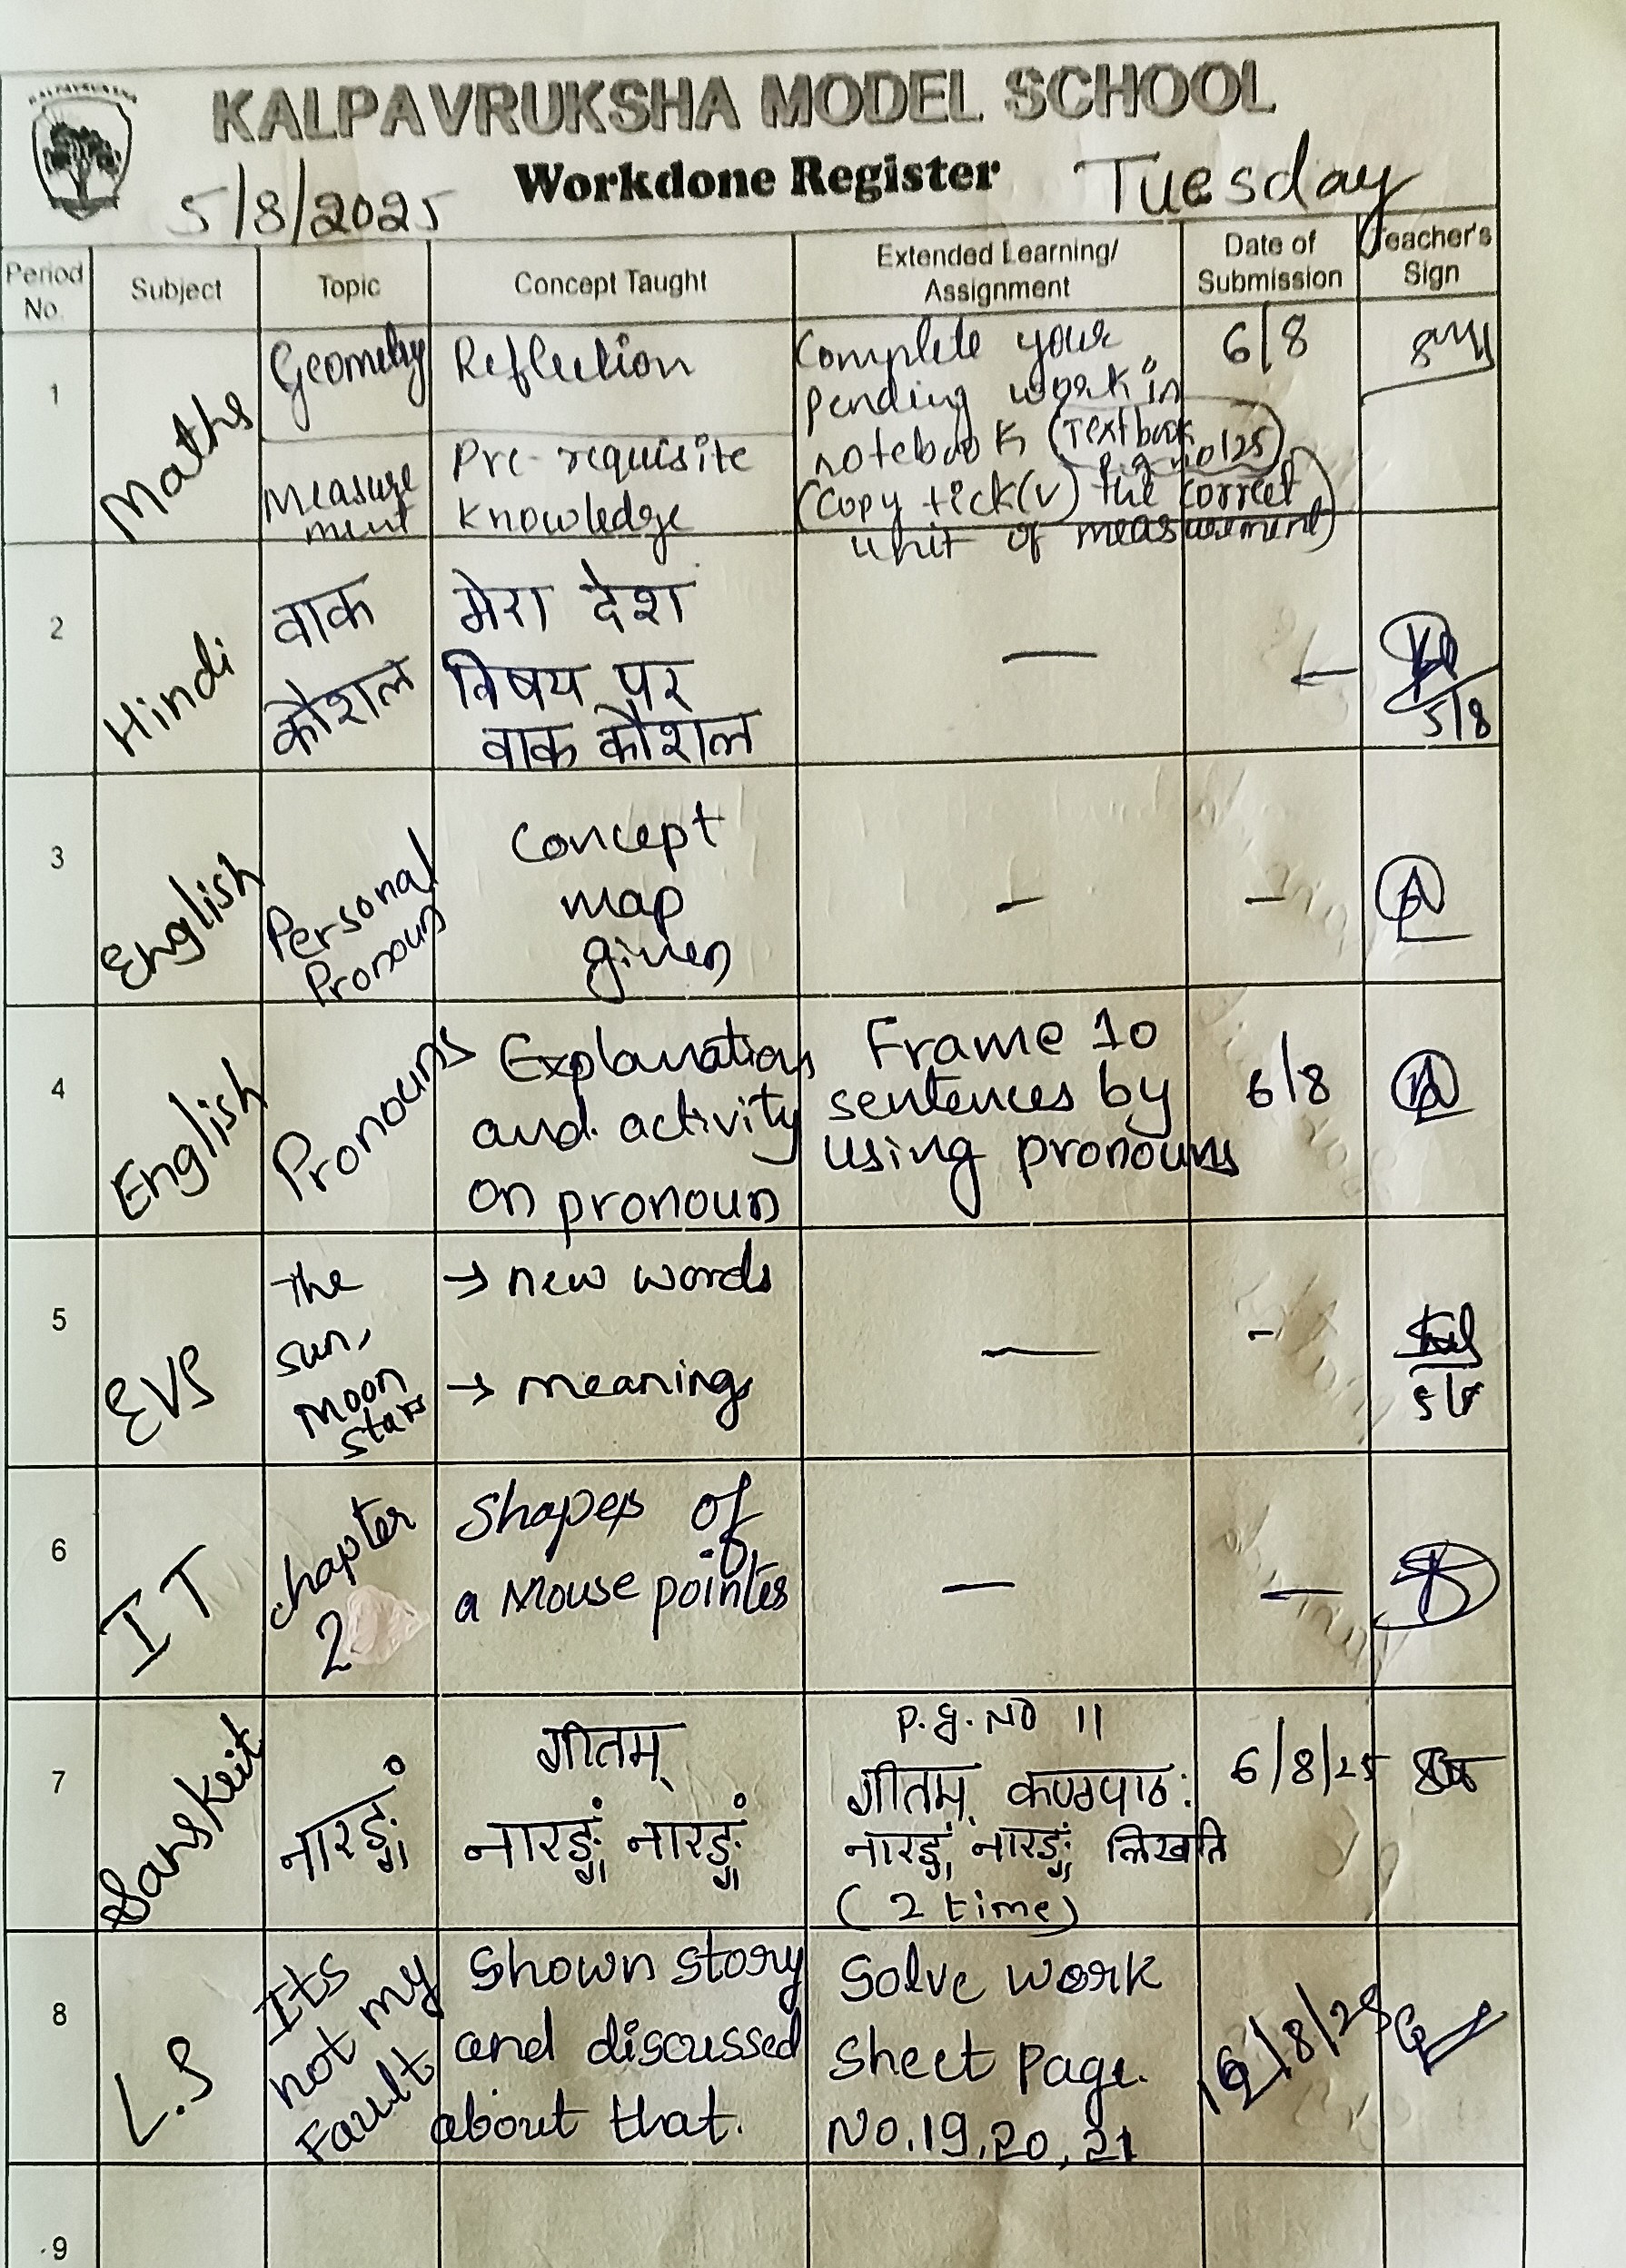 KALPAVRUKSHA
KALPAVRUKSHA MODEL SCHOOL
Workdone Register
Tuesday
5/8/2025
Period No.
Subject
Topic
Concept Taught
Extended Learning/
Assignment
Date of
Submission
Teacher's
Sign
1
Maths
Geometry
Reflection
Measure
ment
Pre-requisite
knowledge
Complete your
pending work in
notebook (Textbook
pg no 125)
(Copy tick(✓) the correct
unit of measurement)
6/8
2
Hindi
वाक
कौशल
मेरा देश
विषय पर
वाक कौशल
—
—
5/8
3
English
Personal
Pronoun
Concept
map
given
—
—
4
English
Pronouns
Explanation
and activity
on pronoun
Frame 10
sentences by
using pronouns
6/8
5
EVS
The
sun,
Moon
stars
→ new words
→ meanings
—
-
5/8
6
IT
chapter
2
Shapes of
a Mouse pointer
—
—
7
Sanskrit
नारङ्गं
गीतम्
नारङ्गं नारङ्गं
P.g.No 11
गीतम् कण्ठपाठ:
नारङ्गं नारङ्गं लिखति
(2 time)
6/8/25
8
L.S
Its
not my
Fault
Shown story
and discussed
about that.
Solve work
sheet page.
No.19,20,21
/8/25
9